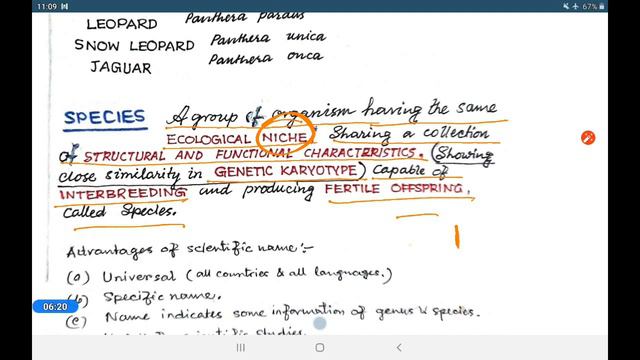 11:09
67%
LEOPARD Panthera pardus
SNOW LEOPARD Panthera unica
JAGUAR Panthera onca
SPECIES A group of organism having the same
ECOLOGICAL NICHE Sharing a collection
of STRUCTURAL AND FUNCTIONAL CHARACTERISTICS. (Showing
close similarity in GENETIC KARYOTYPE) Capable of
INTERBREEDING and producing FERTILE OFFSPRING,
called Species.
Advantages of scientific name :-
(a) Universal (all countries & all languages.)
(b) Specific name.
(c) Name indicates some information of genus & species.
06:20
scientific studies.